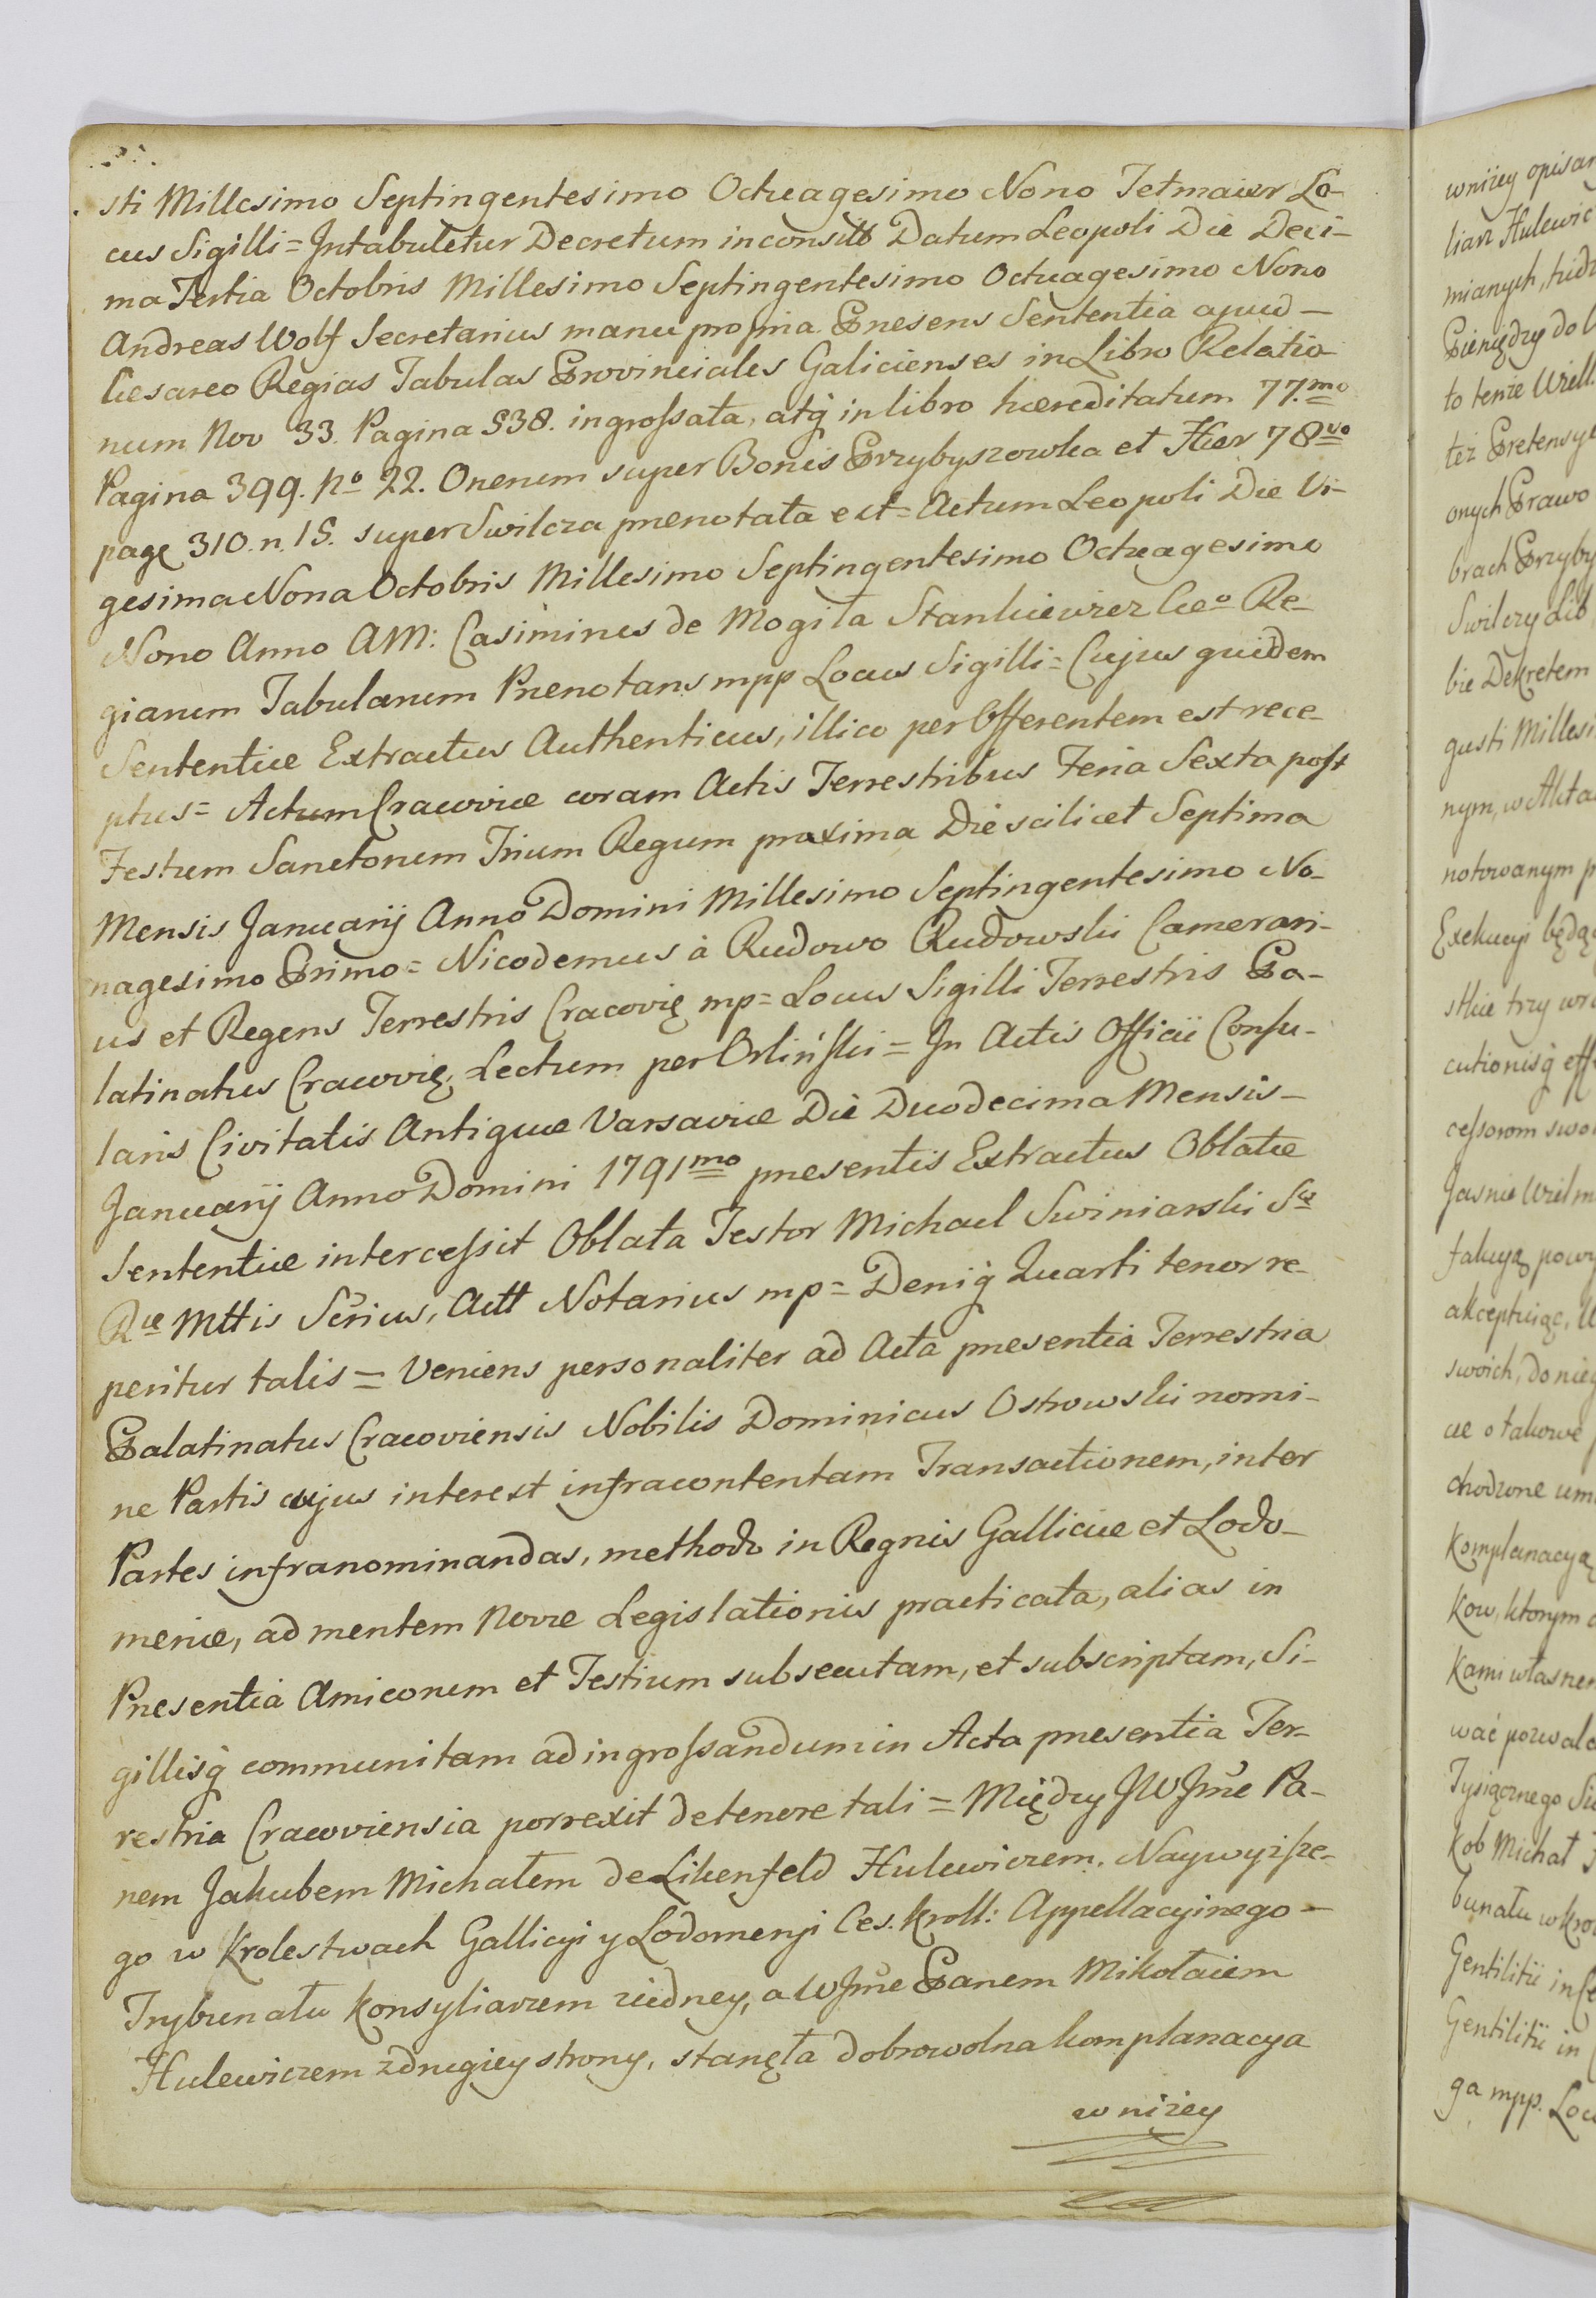 sti Millesimo Septingentesimo Octuagesimo Nono Jetmaier Lo-
cus Sigilli = Intabuletur Decretum in consilio Datum Leopoli Die Deci-
ma Tertia Octobris Millesimo Septingentesimo Octuagesimo Nono
Andreas Wolf Secretarius manu propria Presens Sententia apud -
Cesareo Regias Tabulas Provinciales Galicienses in Libro Relatio
num Nov 33. Pagina 538. ingrossata, atq̃ in libro hæreditatum 77.mo
Pagina 399. No 22. Onerum super Bonis Przybyszowka et Hær 78vo
page 310. n. 15. super Swilcza prenotata est = Actum Leopoli Die Vi-
gesima Nona Octobris Millesimo Septingentesimo Octuagesimo
Nono Anno AM: Casimirus de Mogiła Stankiewicz Cæo Re-
giarum Tabularum Prenotans mpp Locus Sigilli = Cujus quidem
Sententiæ Extractus Authenticus, illico per Offerentem est rece
ptus = Actum Cracoviæ coram Actis Terrestribus Feria Sexta post
Festum Sanctorum Trium Regum proxima Die scilicet Septima
Mensis Januarij Anno Domini Millesimo Septingentesimo No-
nagesimo Primo = Nicodemus à Rudowo Rudowski Camerari-
us et Regens Terrestris Cracovię mp = Locus Sigilli Terrestris Pa-
latinatus Cracovię, Lectum per Orliński = In Actis Officii Consu-
laris Civitatis Antiquæ Varsaviæ Die Duodecima Mensis -
Januarij Anno Domini 1791mo presentis Extractus Oblatæ
Sententiæ intercessit Oblata Testor Michael Swiniarski Sæ
Ræ Mttis Sc̃rius, Actt Notarius mp = Deniq̃ Quarti tenor re-
peritur talis = Veniens personaliter ad Acta presentia Terrestria
Palatinatus Cracoviensis Nobilis Dominicus Ostrowski nomi-
ne Partis cujus interest infracontentam Transactionem, inter
Partes infranominandas, methodo in Regnis Galliciæ et Lodo-
meriæ, ad mentem Novæ Legislationis practicata, alias in
Presentia Amicorum et Testium subsecutam, et subscriptam, Si-
gillisq̃ communitam ad ingrossandum in Acta presentia Ter-
restria Cracoviensia porrexit de tenore tali = Między JWJmc̃ Pa-
nem Jakubem Michałem de Likenfeld Hulewiczem. Naywyższe-
go w Krolestwach Gallicyi y Lodomeryi Ces. Kroll: Appellacyinego -
Trybunału Konsyliarzem ziedney, a WJmc̃ Panem Mikołaiem
Hulewiczem zdrugiey strony, stanęła dobrowolna komplanacya
wniżey
wniżey opisan
mianych,
Pieniędzy do
to tenże
też Pretensye
onych Prawo
brach Przyby
Swilczy
bie Dekretem
gusti Millesi
nym, w Akta
notowanym p
Exekucyi będą
stkie trzy
cutionisq̃ eff
cessorom swo
Jasnie Wielm
takyą powy
akceptuiąc,
swoich, do nie
ce o takowe
chodzone um
Komplanacyą
kow, ktorym
kami własnem
wać pozwala
Tysiącznego
kob Michał
bunału w Kro
Gentilitii in
Gentilitii in
ga mpp. Locu